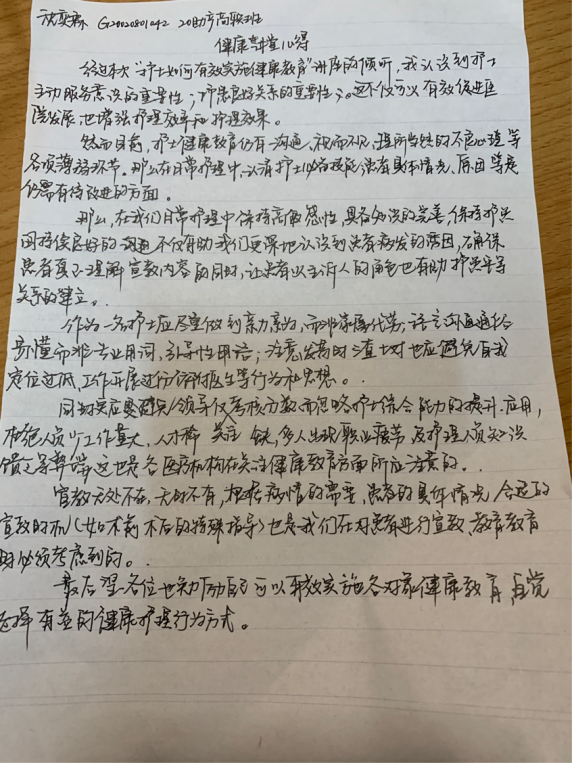 G20020801042 20助产高职班
健康宣堂心得
经过本次“护士如何有效实施健康教育”讲座的倾听，我认识到护士
主动服务意识的重要性；护患良好关系的重要性》。这不仅可以有效促进医
院发展，也增强护理效率和护理效果。
然而目前，护士健康教育仍有沟通、视而不见、理所当然的不良心理等
各项薄弱环节。那么在日常护理中，认清护士必备技能、患者具体情况、原因等是
仍需有待改进的方面。
那么，在我们日常护理中保持高敏感性，具备知识的完善，保持护患
间持续良好的沟通不仅有助我们更深地认识到患者病发的诱因，确保
患者真正理解宣教内容的同时，让患者以主诉人的角色也有助护患平等
关系的建立。
作为一名护士应尽量做到亲力亲为，而非家属代劳；语言沟通通俗
易懂而非专业用词，引导性用语；注意发言时渣土对也应避免自我
定位过低，工作开展过份依附医生等行为和思想。
同时更应要避免领导仅考核分数而忽略护士综合能力的提升.应用，
杜绝人员少工作量大，人才稀缺，多人出现职业疲劳及护理人员知识
馈乏等弊端，这也是各医疗机构在关注健康教育方面所应注意的。
宣教无处不在，无时不有，根据病情的需要，患者的具体情况，合适的
宣教时机（如术前术后的特殊指导）也是我们在对患者进行宣教、教育教育
时必须考虑到的。
最后望各位也努力励自己可以有效实施各对象健康教育，自觉
选择有益的健康护理行为方式。